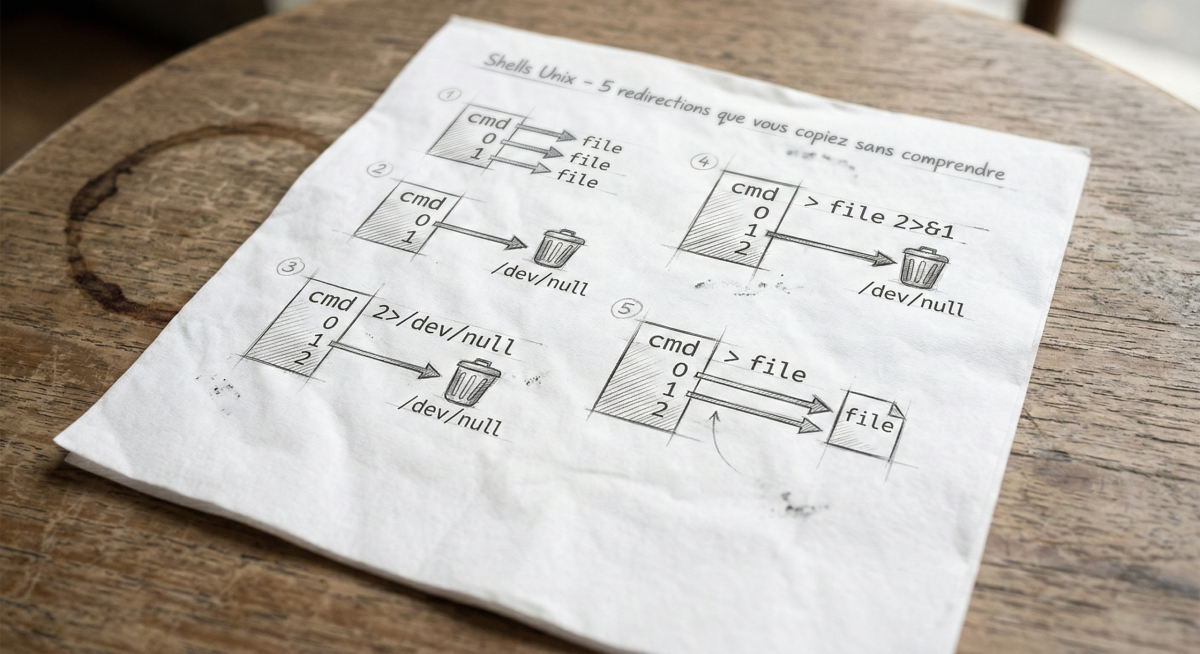 Shells Unix – 5 redirections que vous copiez sans comprendre
1
cmd
0
1
file
file
file
2
cmd
0
1
/dev/null
3
cmd
0
1
2
2>/dev/null
/dev/null
4
cmd
0
1
2
> file 2>&1
/dev/null
5
cmd
0
1
2
> file
file